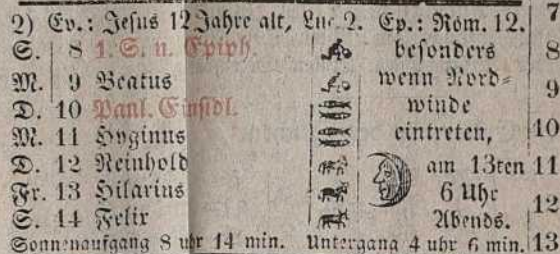 2) Ev.: Jesus 12 Jahre alt, Luc. 2. Ep.: Röm. 12. 7
S. 8 1. S. n. Epiph. besonders 8
M. 9 Beatus wenn Nord- 9
D. 10 Paul. Einsidl. winde
M. 11 Hyginus eintreten, 10
D. 12 Reinhold am 13ten 11
Fr. 13 Hilarius 6 Uhr
S. 14 Felix Abends. 12
Sonnenaufgang 8 uhr 14 min. Untergang 4 uhr 6 min. 13